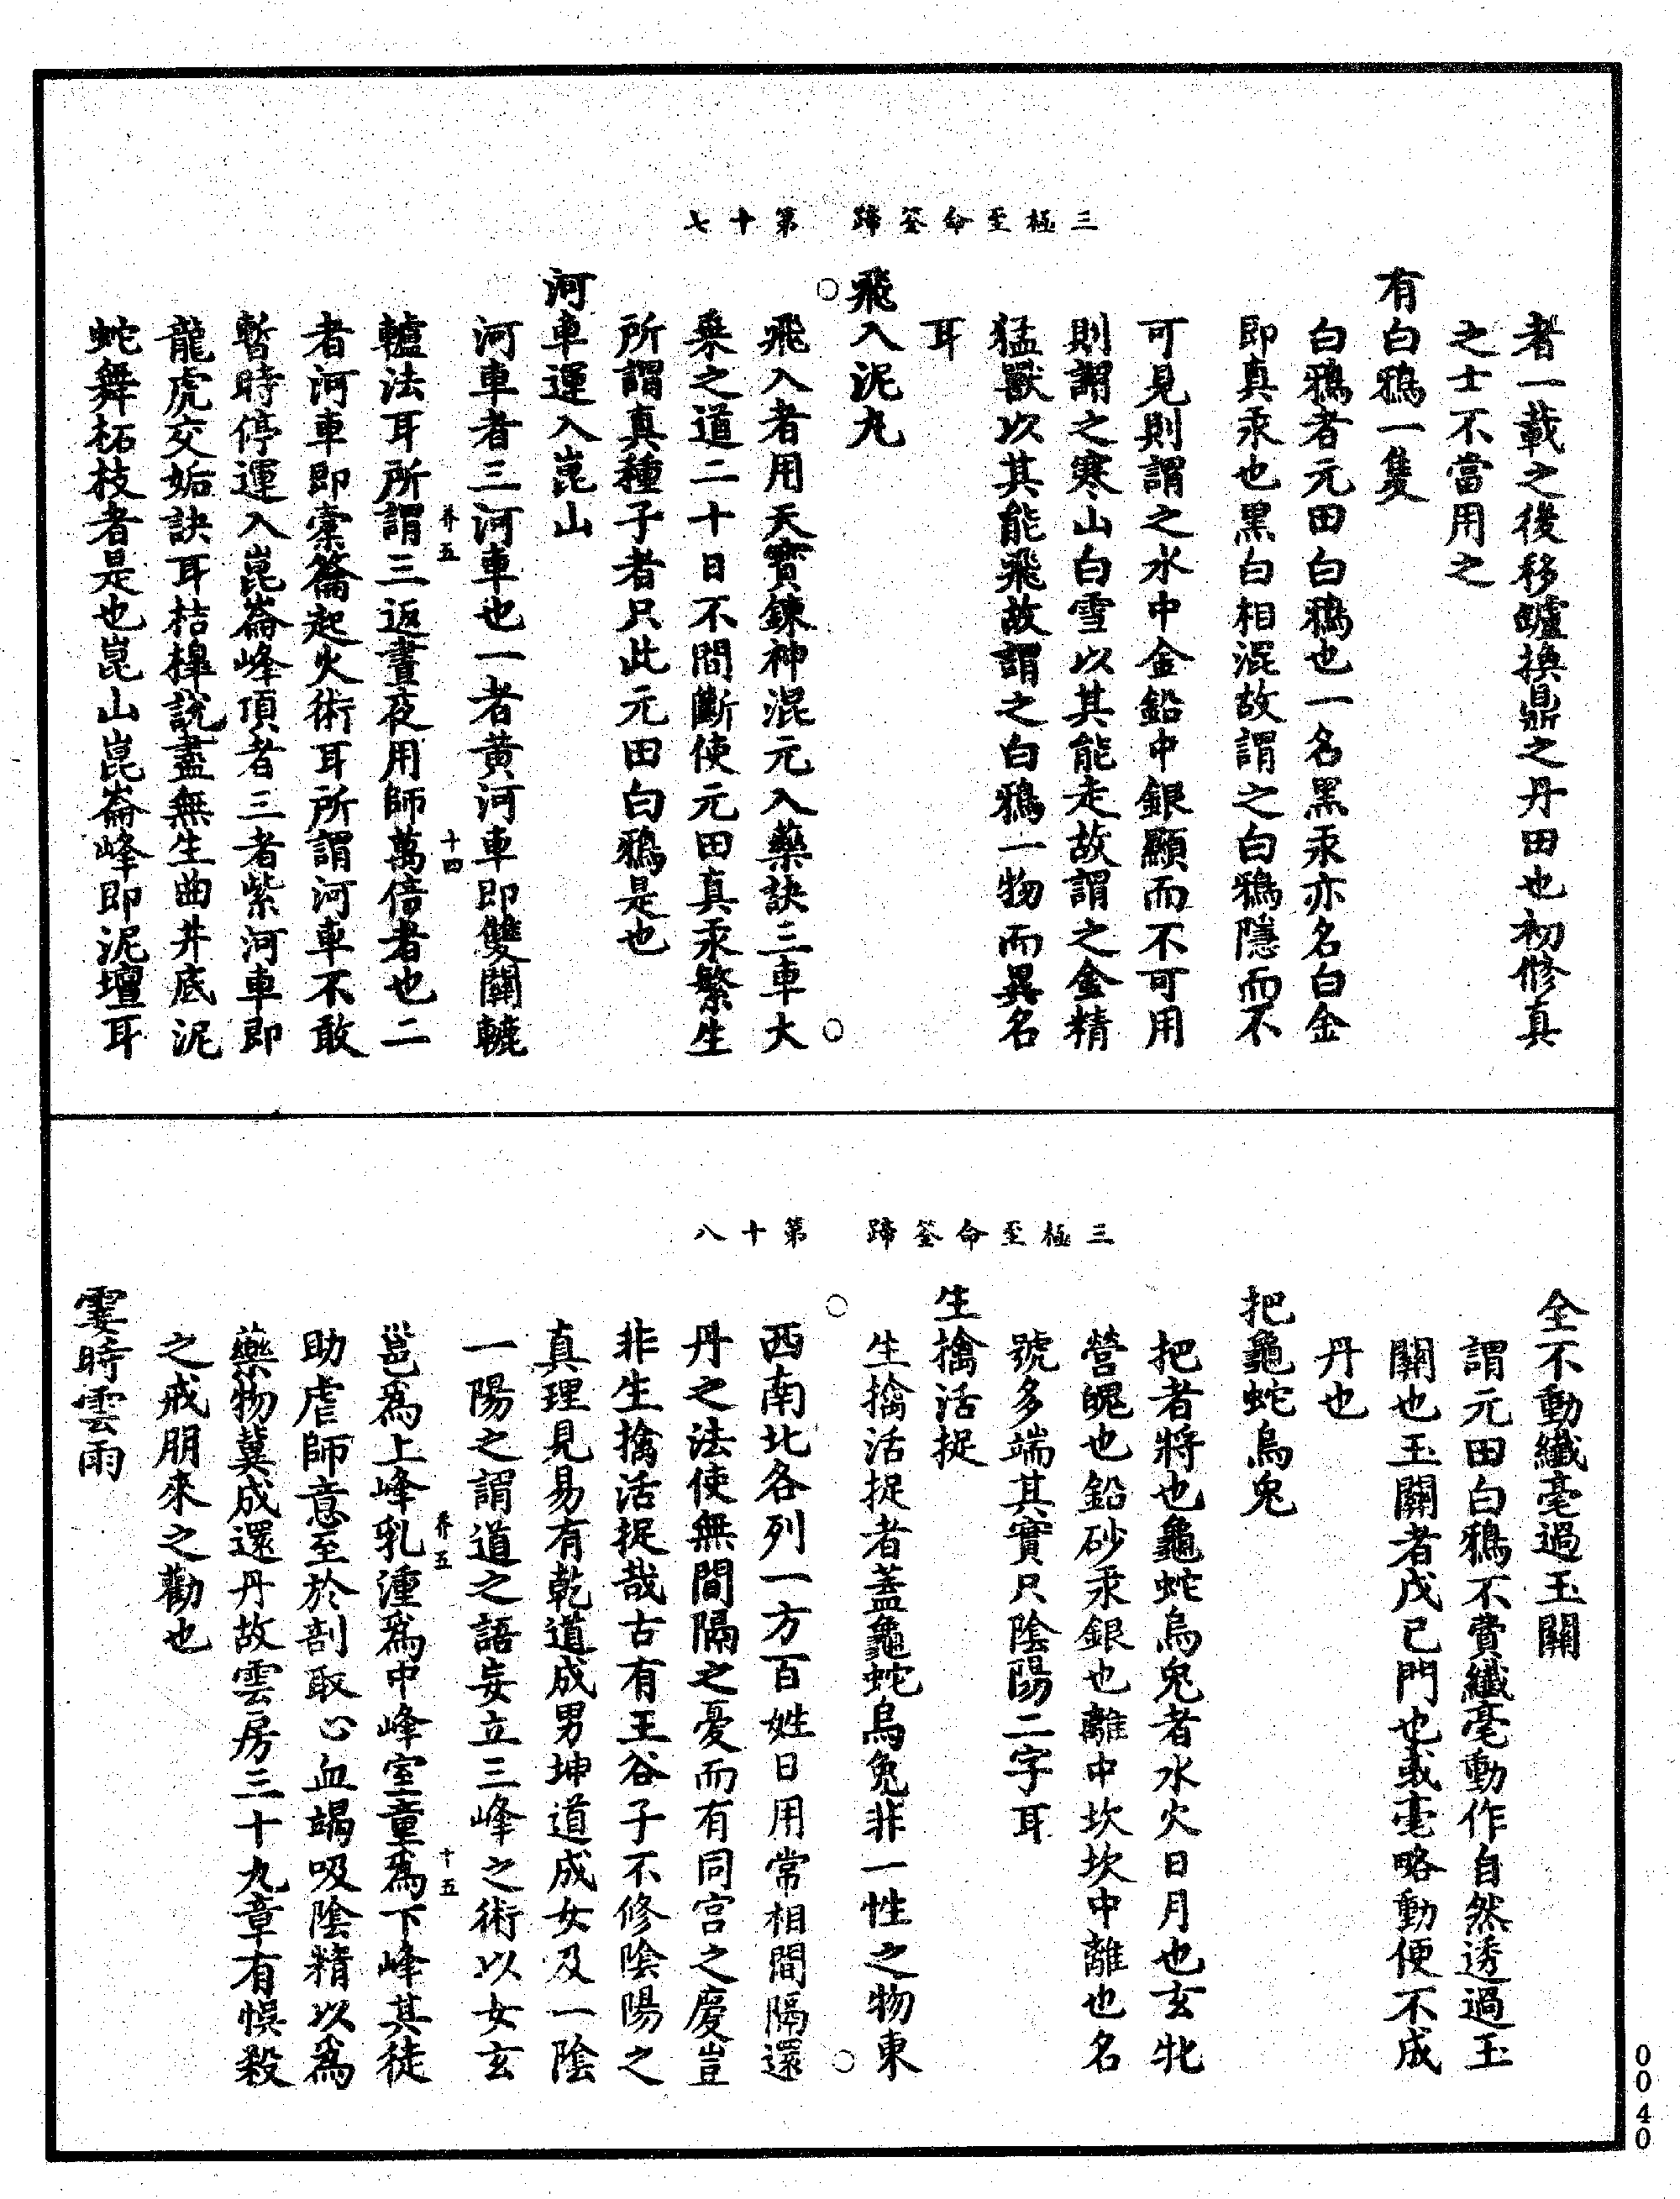 三極至命筌蹄　第十七
者一載之後移爐換鼎之丹田也初修真
之士不當用之
有白鴉一隻
白鴉者元田白鴉也一名黑汞亦名白金
即真汞也黑白相混故謂之白鴉隱而不
可見則謂之水中金鉛中銀顯而不可用
則謂之寒山白雪以其能走故謂之金精
猛獸以其能飛故謂之白鴉一物而異名
耳
飛入泥丸
飛入者用天寶鍊神混元入藥訣三車大
乘之道二十日不間斷使元田真汞繁生
所謂真種子者只此元田白鴉是也
河車運入崑山
河車者三河車也一者黃河車即雙關轆
轤法耳所謂三返晝夜用師萬倍者也二
者河車即橐籥起火術耳所謂河車不敢
暫時停運入崑崙峰頂者三者紫河車即
龍虎交姤訣耳桔槔說盡無生曲井底泥
蛇舞柘枝者是也崑山崑崙峰即泥壇耳
養五　十四
三極至命筌蹄　第十八
全不動纖毫過玉關
謂元田白鴉不費纖毫動作自然透過玉
關也玉關者戊己門也或毫略動便不成
丹也
把龜蛇烏兔
把者將也龜蛇烏兔者水火日月也玄牝
營魄也鉛砂汞銀也離中坎坎中離也名
號多端其實只陰陽二字耳
生擒活捉
生擒活捉者蓋龜蛇烏兔非一性之物東
西南北各列一方百姓日用常相間隔還
丹之法使無間隔之憂而有同宮之慶豈
非生擒活捉哉古有王谷子不修陰陽之
真理見易有乾道成男坤道成女及一陰
一陽之謂道之語妄立三峰之術以女玄
邕為上峰乳湩為中峰室童為下峰其徒
助虐師意至於剖取心血竭吸陰精以為
藥物冀成還丹故雲房三十九章有悞殺
之戒朋來之勸也
霎時雲雨
養五　十五
0040